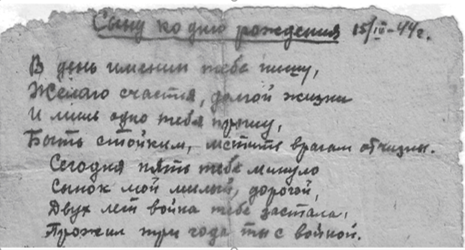 Сыну ко дню рождения 15/IV-44г.
В день именин тебе пишу,
Желаю счастья, долгой жизни
И лишь одно тебя прошу,
Быть стойким, мстить врагам отчизны.
Сегодня пять тебе минуло
Сынок мой милый, дорогой,
Двух лет война тебя застала,
Прожил три года ты с войной.